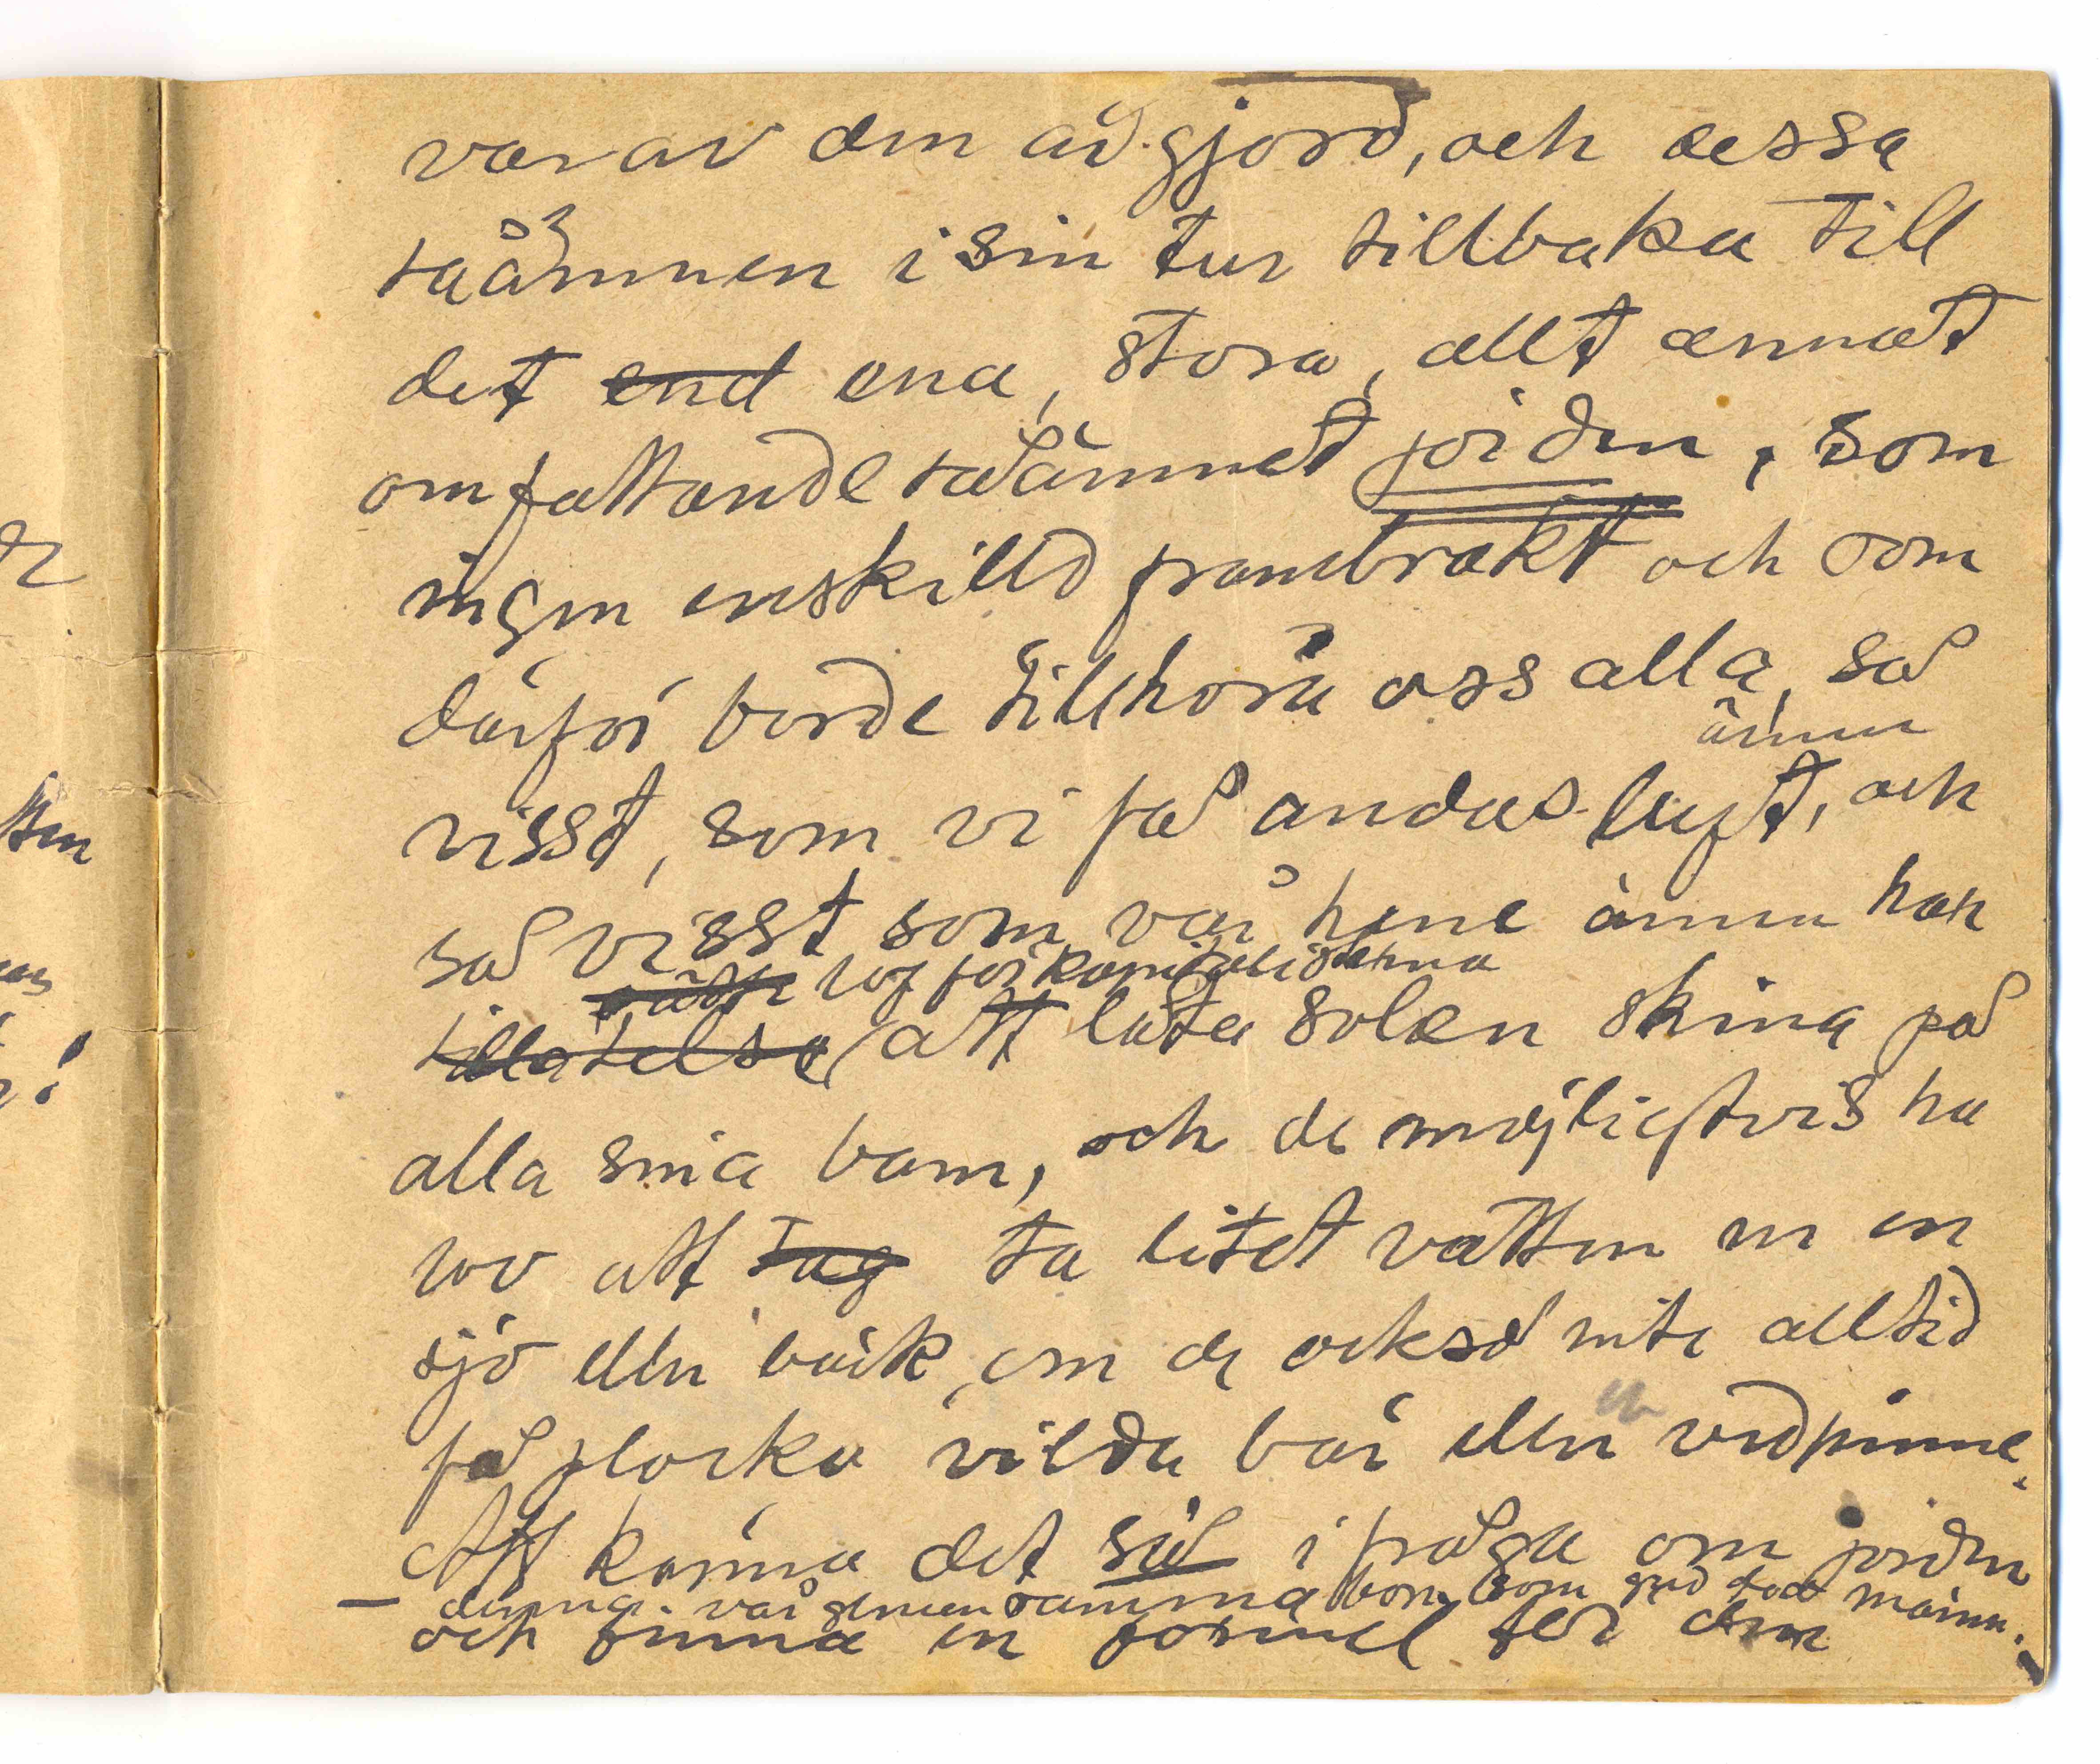 varav den är gjord, och dessa
råämnen i sin tur tillbaka till
det end ena, stora, allt annat
omfattande råämnet jorden, som
ingen enskilld frambrakt och som
därför borde tillhöra oss alla, så
ännu
visst, som vi få andas luft, och
så visst som vår herre ännu har
rätt lof för kapitalisterna
tillåtelse att låta solen skina på
alla sina barn, och de möjligtvis ha
lov att tag ta litet vatten ur en
sjö eller bäck, om de också inte alltid
få plocka vilda bär eller vedpinne.
Att känna det så i fråga om jorden
— denna vår gemensamma bon som gud gav männ.
och finna en formel för den